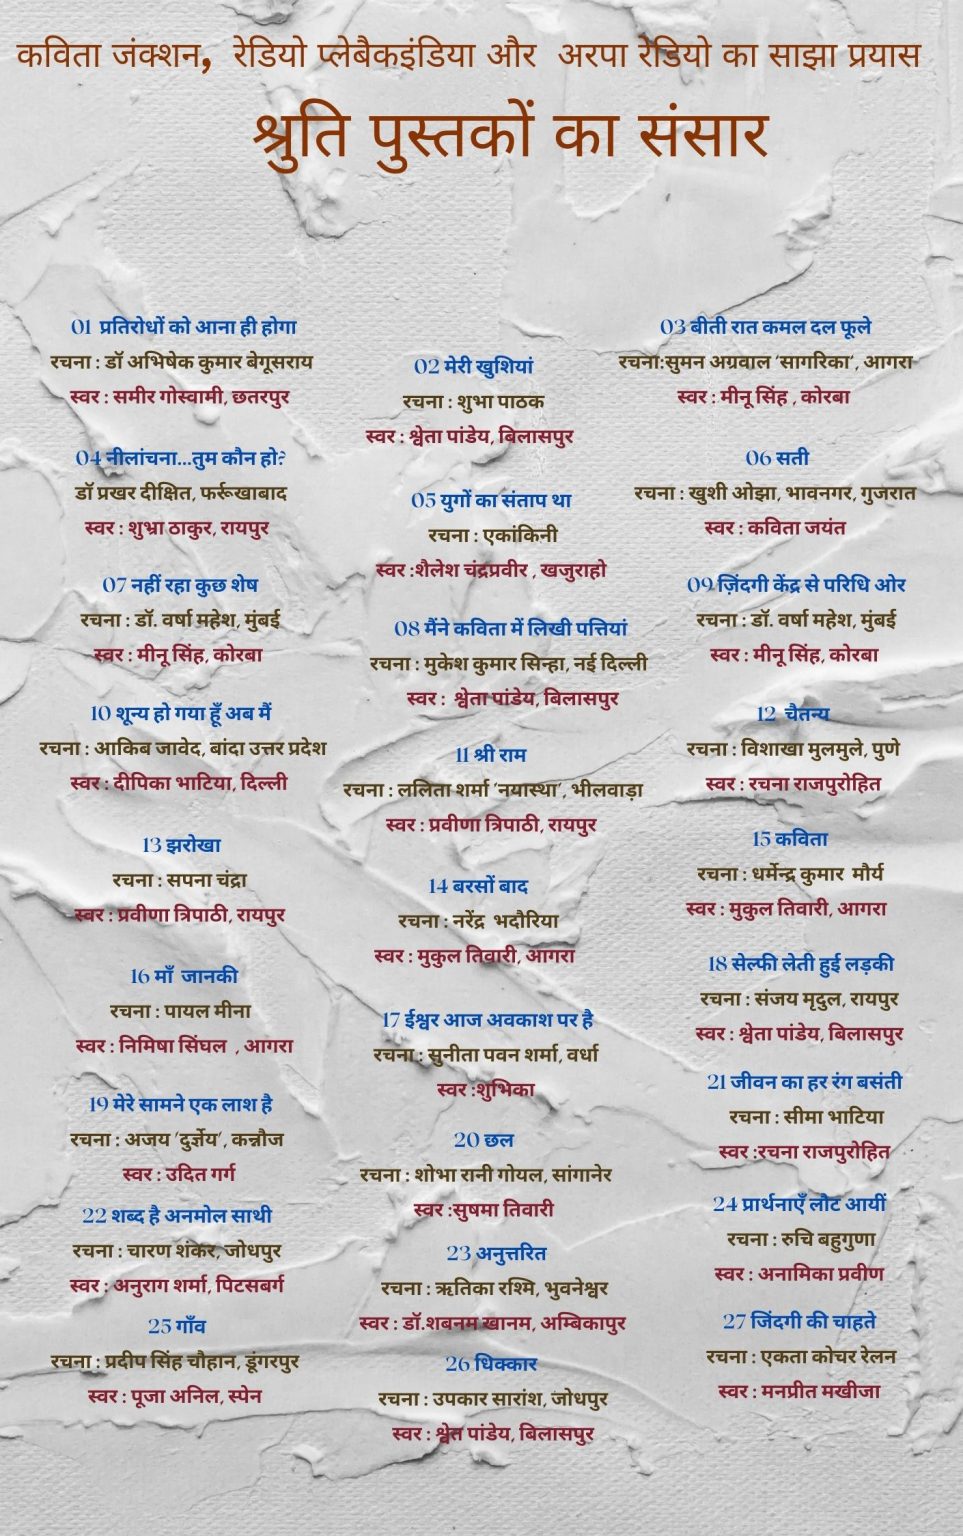 कविता जंक्शन, रेडियो प्लेबैकइंडिया और अरपा रेडियो का साझा प्रयास
श्रुति पुस्तकों का संसार
01 प्रतिरोधों को आना ही होगा
रचना : डॉ अभिषेक कुमार बेगूसराय
स्वर : समीर गोस्वामी, छतरपुर
02 मेरी खुशियां
रचना : शुभा पाठक
स्वर : श्वेता पांडेय, बिलासपुर
03 बीती रात कमल दल फूले
रचना:सुमन अग्रवाल 'सागरिका', आगरा
स्वर : मीनू सिंह , कोरबा
04 नीलांचना...तुम कौन हो?
डॉ प्रखर दीक्षित, फर्रूखाबाद
स्वर : शुभ्रा ठाकुर, रायपुर
05 युगों का संताप था
रचना : एकांकिनी
स्वर :शैलेश चंद्रप्रवीर , खजुराहो
06 सती
रचना : खुशी ओझा, भावनगर, गुजरात
स्वर : कविता जयंत
07 नहीं रहा कुछ शेष
रचना : डॉ. वर्षा महेश, मुंबई
स्वर : मीनू सिंह, कोरबा
08 मैंने कविता में लिखी पत्तियां
रचना : मुकेश कुमार सिन्हा, नई दिल्ली
स्वर : श्वेता पांडेय, बिलासपुर
09 ज़िंदगी केंद्र से परिधि ओर
रचना : डॉ. वर्षा महेश, मुंबई
स्वर : मीनू सिंह, कोरबा
10 शून्य हो गया हूँ अब मैं
रचना : आकिब जावेद, बांदा उत्तर प्रदेश
स्वर : दीपिका भाटिया, दिल्ली
11 श्री राम
रचना : ललिता शर्मा 'नयास्था', भीलवाड़ा
स्वर : प्रवीणा त्रिपाठी, रायपुर
12 चैतन्य
रचना : विशाखा मुलमुले, पुणे
स्वर : रचना राजपुरोहित
13 झरोखा
रचना : सपना चंद्रा
स्वर : प्रवीणा त्रिपाठी, रायपुर
14 बरसों बाद
रचना : नरेंद्र भदौरिया
स्वर : मुकुल तिवारी, आगरा
15 कविता
रचना : धर्मेन्द्र कुमार मौर्य
स्वर : मुकुल तिवारी, आगरा
16 माँ जानकी
रचना : पायल मीना
स्वर : निमिषा सिंघल , आगरा
17 ईश्वर आज अवकाश पर है
रचना : सुनीता पवन शर्मा, वर्धा
स्वर :शुभिका
18 सेल्फी लेती हुई लड़की
रचना : संजय मृदुल, रायपुर
स्वर : श्वेता पांडेय, बिलासपुर
19 मेरे सामने एक लाश है
रचना : अजय 'दुर्ज्ञेय', कन्नौज
स्वर : उदित गर्ग
20 छल
रचना : शोभा रानी गोयल, सांगानेर
स्वर :सुषमा तिवारी
21 जीवन का हर रंग बसंती
रचना : सीमा भाटिया
स्वर :रचना राजपुरोहित
22 शब्द है अनमोल साथी
रचना : चारण शंकर, जोधपुर
स्वर : अनुराग शर्मा, पिटसबर्ग
23 अनुत्तरित
रचना : ऋतिका रश्मि, भुवनेश्वर
स्वर : डॉ.शबनम खानम, अम्बिकापुर
24 प्रार्थनाएँ लौट आयीं
रचना : रुचि बहुगुणा
स्वर : अनामिका प्रवीण
25 गाँव
रचना : प्रदीप सिंह चौहान, डूंगरपुर
स्वर : पूजा अनिल, स्पेन
26 धिक्कार
रचना : उपकार सारांश, जोधपुर
स्वर : श्वेत पांडेय, बिलासपुर
27 जिंदगी की चाहते
रचना : एकता कोचर रेलन
स्वर : मनप्रीत मखीजा